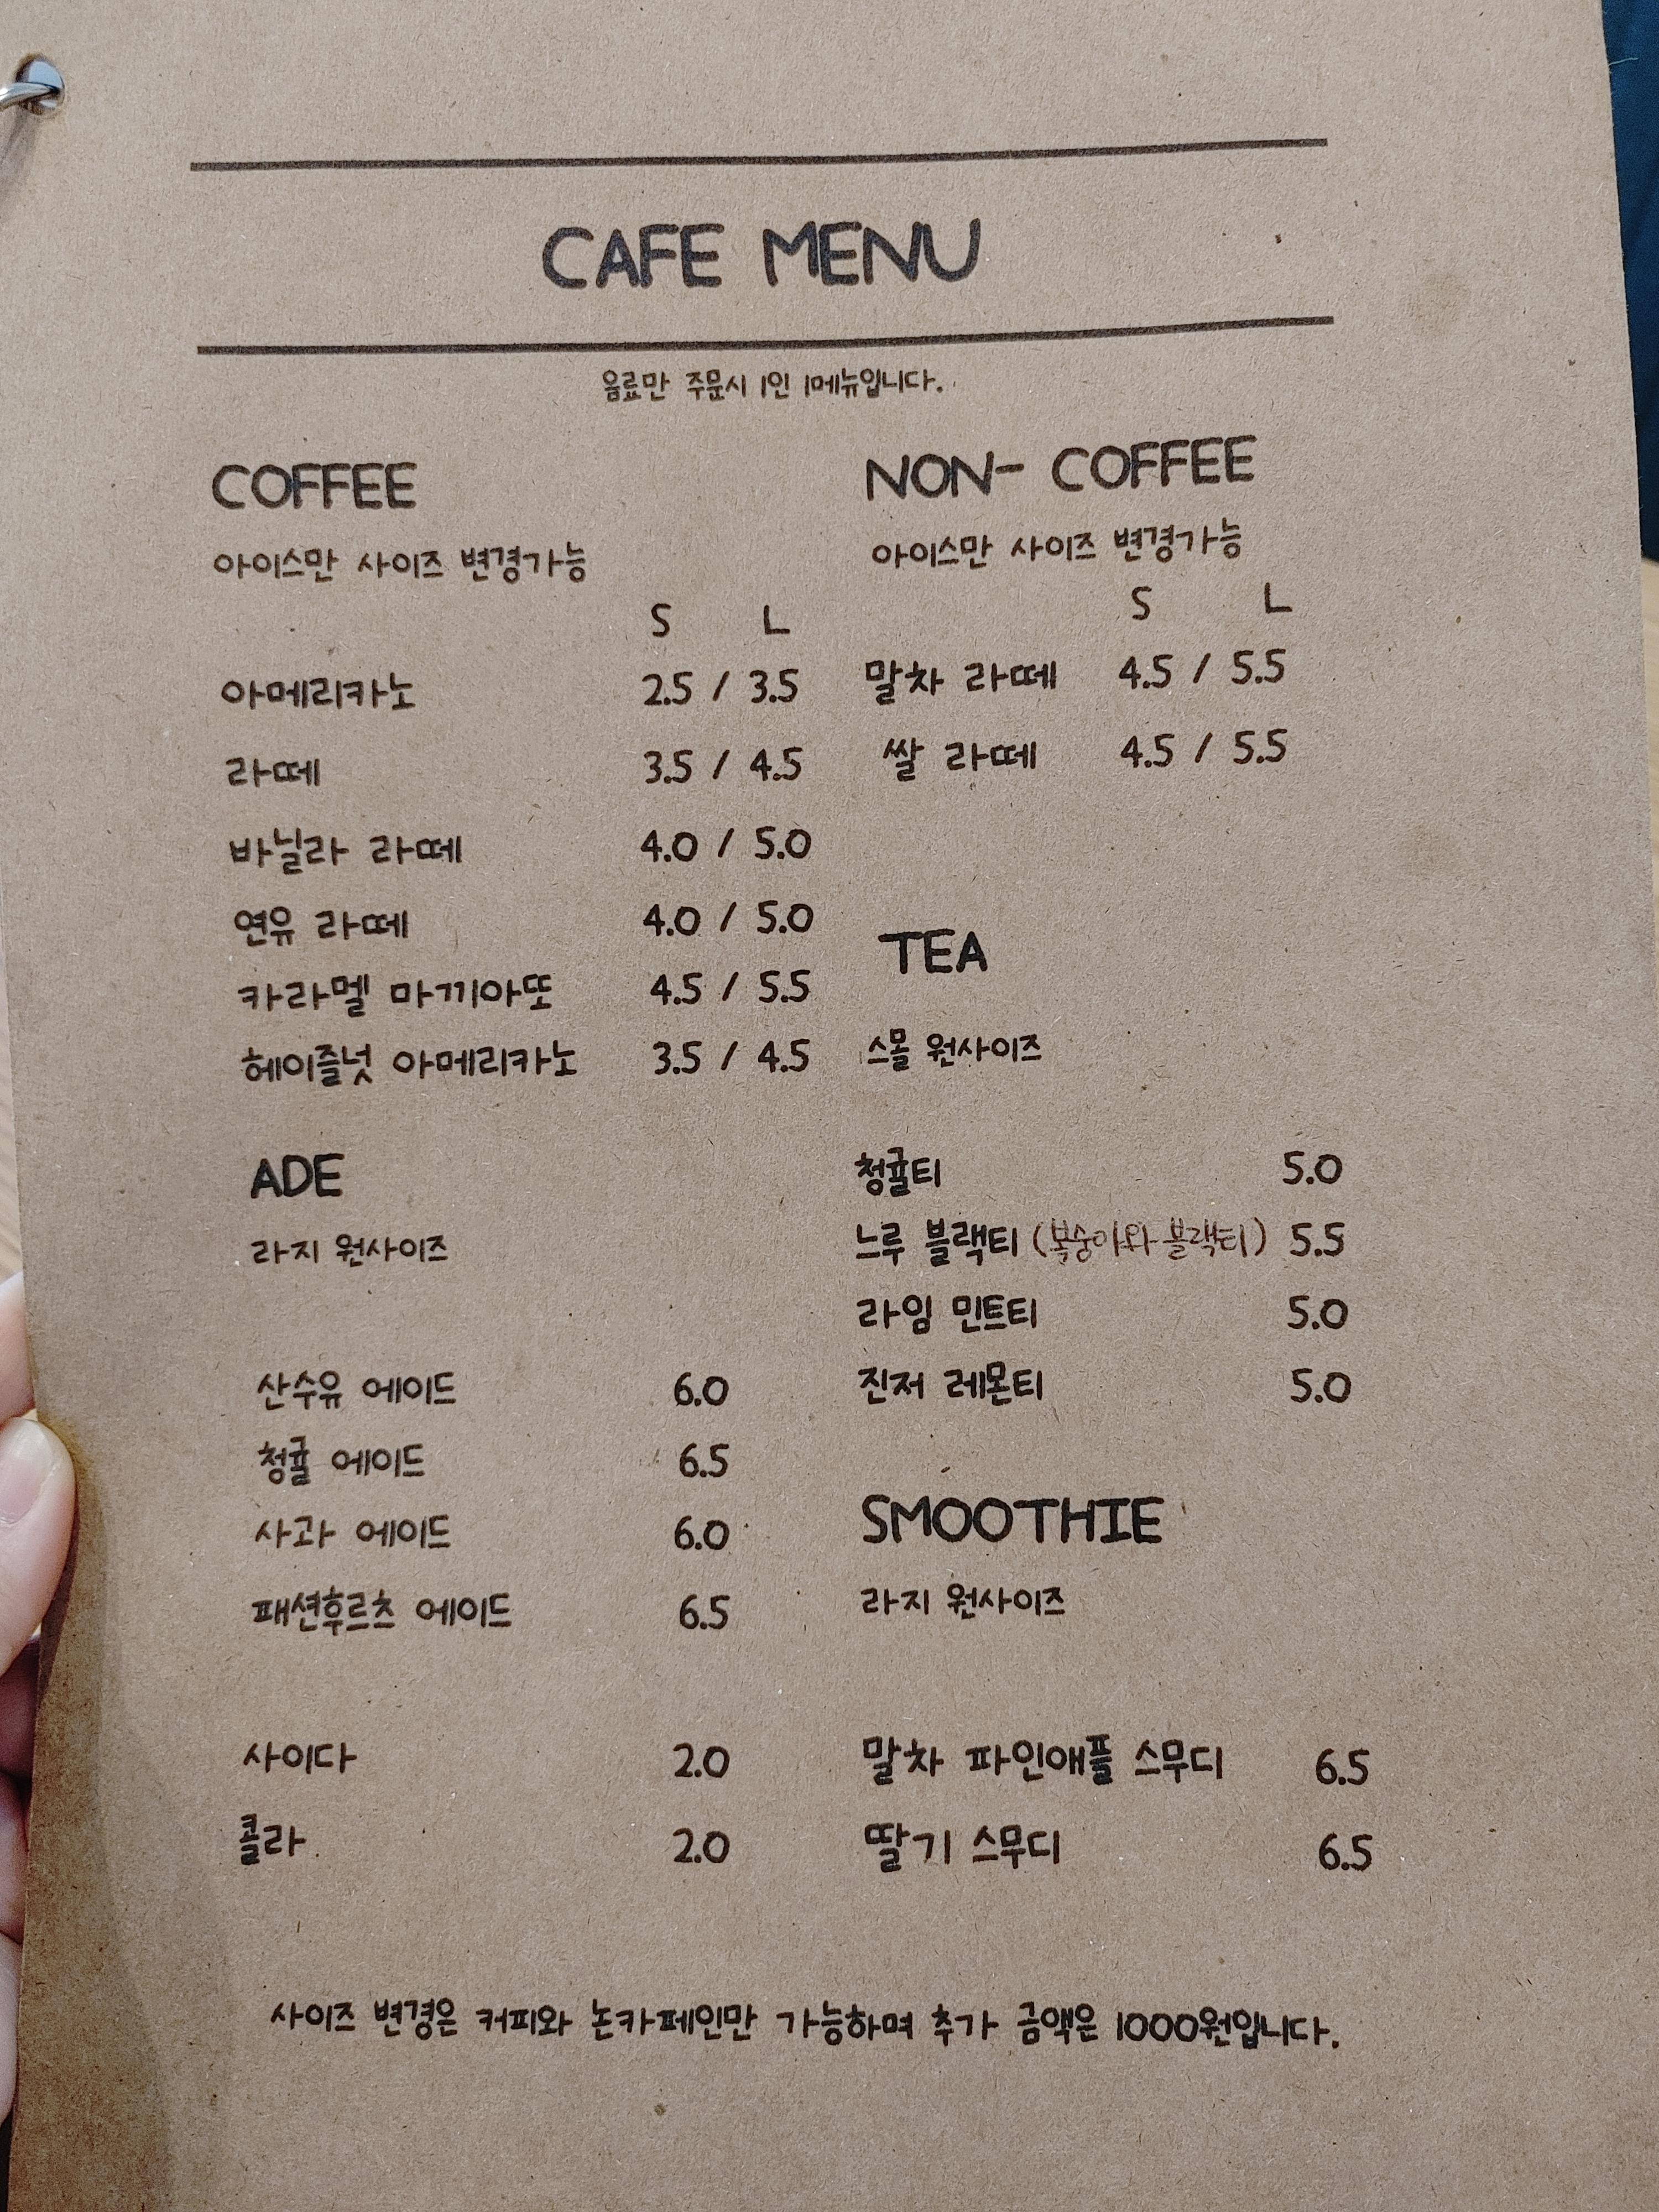 CAFE MENU
음료만 주문시 1인 1메뉴입니다.
COFFEE
아이스만 사이즈 변경가능
S L
아메리카노 2.5 / 3.5
라떼 3.5 / 4.5
바닐라 라떼 4.0 / 5.0
연유 라떼 4.0 / 5.0
카라멜 마끼아또 4.5 / 5.5
헤이즐넛 아메리카노 3.5 / 4.5
ADE
라지 원사이즈
산수유 에이드 6.0
청귤 에이드 6.5
사과 에이드 6.0
패션후르츠 에이드 6.5
사이다 2.0
콜라 2.0
NON- COFFEE
아이스만 사이즈 변경가능
S L
말차 라떼 4.5 / 5.5
쌀 라떼 4.5 / 5.5
TEA
스몰 원사이즈
청귤티 5.0
느루 블랙티 (복숭아와 블랙티) 5.5
라임 민트티 5.0
진저 레몬티 5.0
SMOOTHIE
라지 원사이즈
말차 파인애플 스무디 6.5
딸기 스무디 6.5
사이즈 변경은 커피와 논카페인만 가능하며 추가 금액은 1000원입니다.